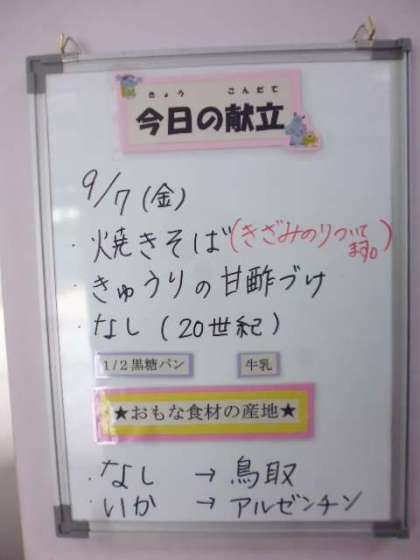 きょう こんだて
今日の献立
9/7(金)
・焼きそば(きざみのりついて
ます。)
・きゅうりの甘酢づけ
・なし(20世紀)
1/2黒糖パン 牛乳
★おもな食材の産地★
・なし → 鳥取
・いか → アルゼンチン